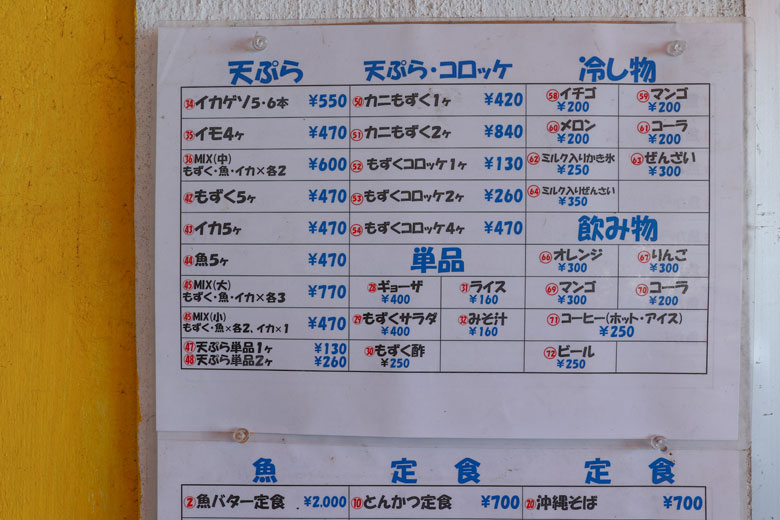 天ぷら
㉞イカゲソ5・6本 ¥550
㉟イモ4ヶ ¥470
㊱MIX(中)
もずく・魚・イカ×各2 ¥600
㊷もずく5ヶ ¥470
㊸イカ5ヶ ¥470
㊹魚5ヶ ¥470
㊺MIX(大)
もずく・魚・イカ×各3 ¥770
㊺MIX(小)
もずく・魚×各2、イカ×1 ¥470
㊼天ぷら単品1ヶ ¥130
㊽天ぷら単品2ヶ ¥260
天ぷら・コロッケ
㊿カニもずく1ヶ ¥420
51カニもずく2ヶ ¥840
52もずくコロッケ1ヶ ¥130
53もずくコロッケ2ヶ ¥260
54もずくコロッケ4ヶ ¥470
単品
㉘ギョーザ
¥400
㉛ライス
¥160
㉙もずくサラダ
¥400
㉜みそ汁
¥160
㉚もずく酢
¥250
冷し物
58イチゴ
¥200
59マンゴ
¥200
60メロン
¥200
61コーラ
¥200
62ミルク入りかき氷
¥250
63ぜんざい
¥300
64ミルク入りぜんざい
¥350
飲み物
66オレンジ
¥300
67りんご
¥300
69マンゴ
¥300
70コーラ
¥200
71コーヒー(ホット・アイス)
¥250
72ビール
¥250
魚
②魚バター定食 ¥2.000
定食
⑩とんかつ定食 ¥700
定食
⑳沖縄そば ¥700